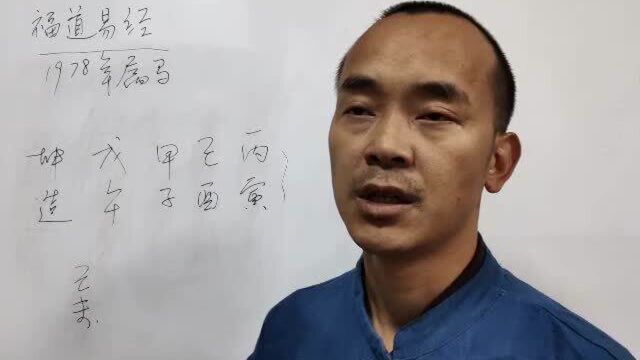 福道易经
1978年属马
坤 戊 甲 己 丙
造 午 子 酉 寅
己
未